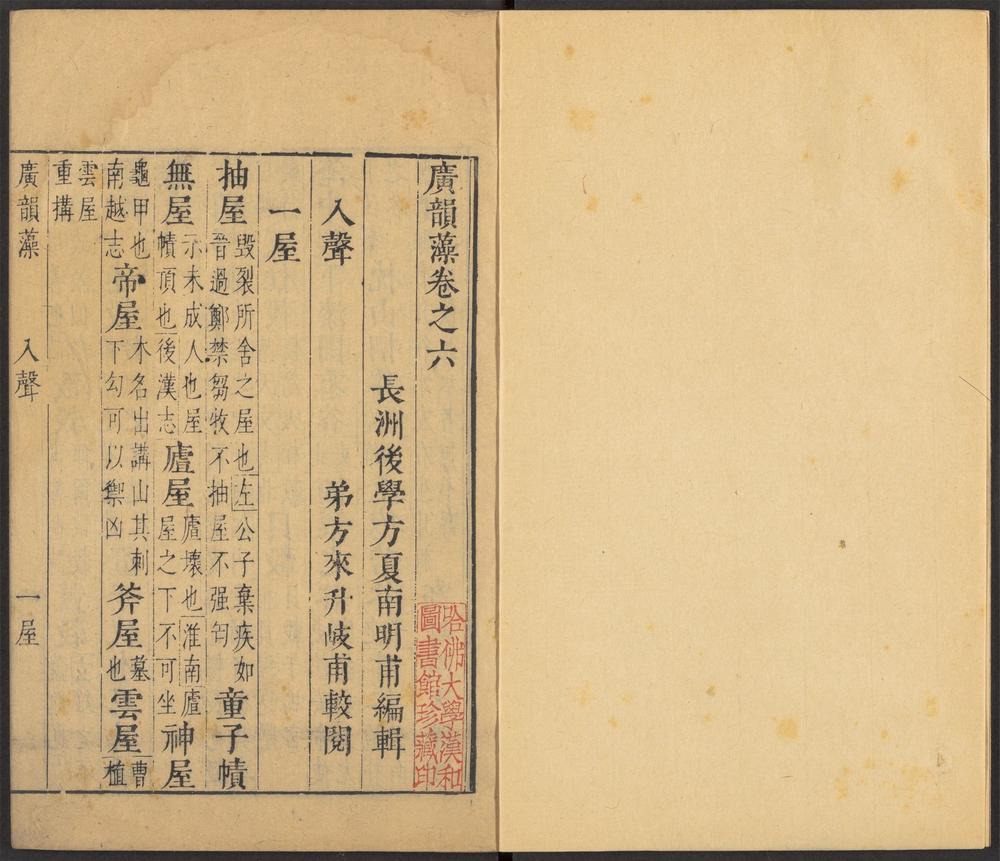 廣韻藻卷之六
長洲後學方夏南明甫編輯
入聲
弟方來升岐甫較閱
一屋
抽屋
毀裂所舍之屋也左公子棄疾如
晉過鄭禁芻牧不抽屋不强匄
童子幘
無屋
示未成人也屋
幘頂也後漢志
廬屋
廬壞也淮南廬
屋之下不可坐
神屋
龜甲也
南越志
帝屋
木名出講山其刺
下勾可以禦凶
斧屋
墓
也
雲屋
曹
植
雲屋
重搆
廣韻藻
入聲
一屋
哈佛大學漢和
圖書館珍藏印